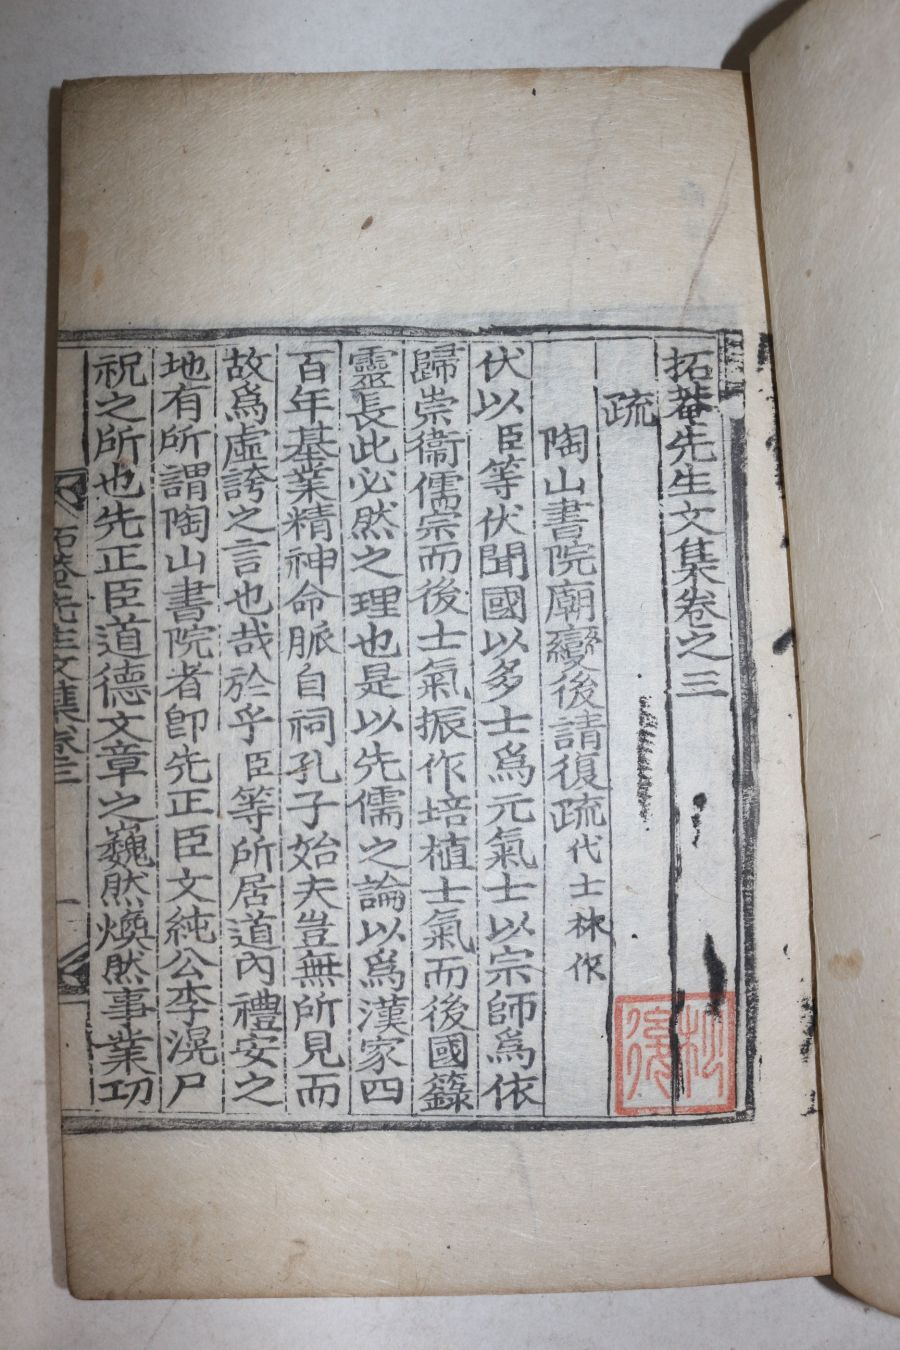 拓菴先生文集卷之三
疏
陶山書院廟變後請復疏代士林作
伏以臣等伏聞國以多士爲元氣士以宗師爲依
歸崇衞儒宗而後士氣振作培植士氣而後國籙
靈長此必然之理也是以先儒之論以爲漢家四
百年基業精神命脈自祠孔子始夫豈無所見而
故爲虛誇之言也哉於乎臣等所居道內禮安之
地有所謂陶山書院者卽先正臣文純公李滉尸
祝之所也先正臣道德文章之巍然煥然事業功
拓菴先生文集卷三
一